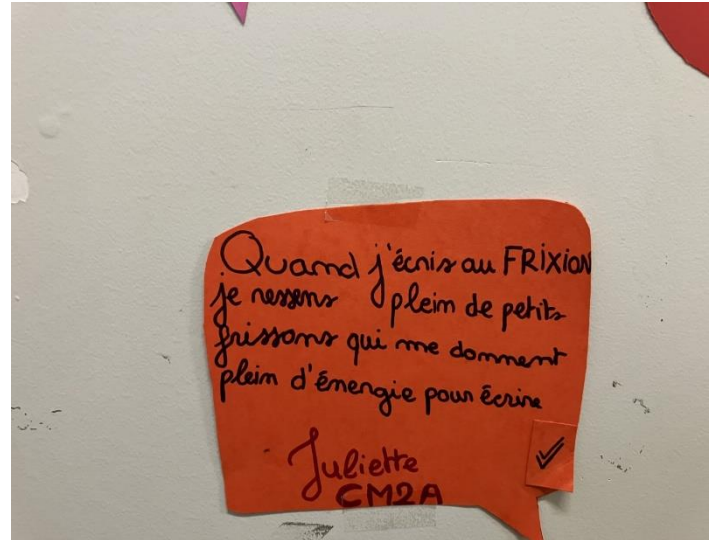 Quand j'écris au FRIXION
je ressens plein de petits
frissons qui me donnent
plein d'énergie pour écrire
Juliette
CM2A